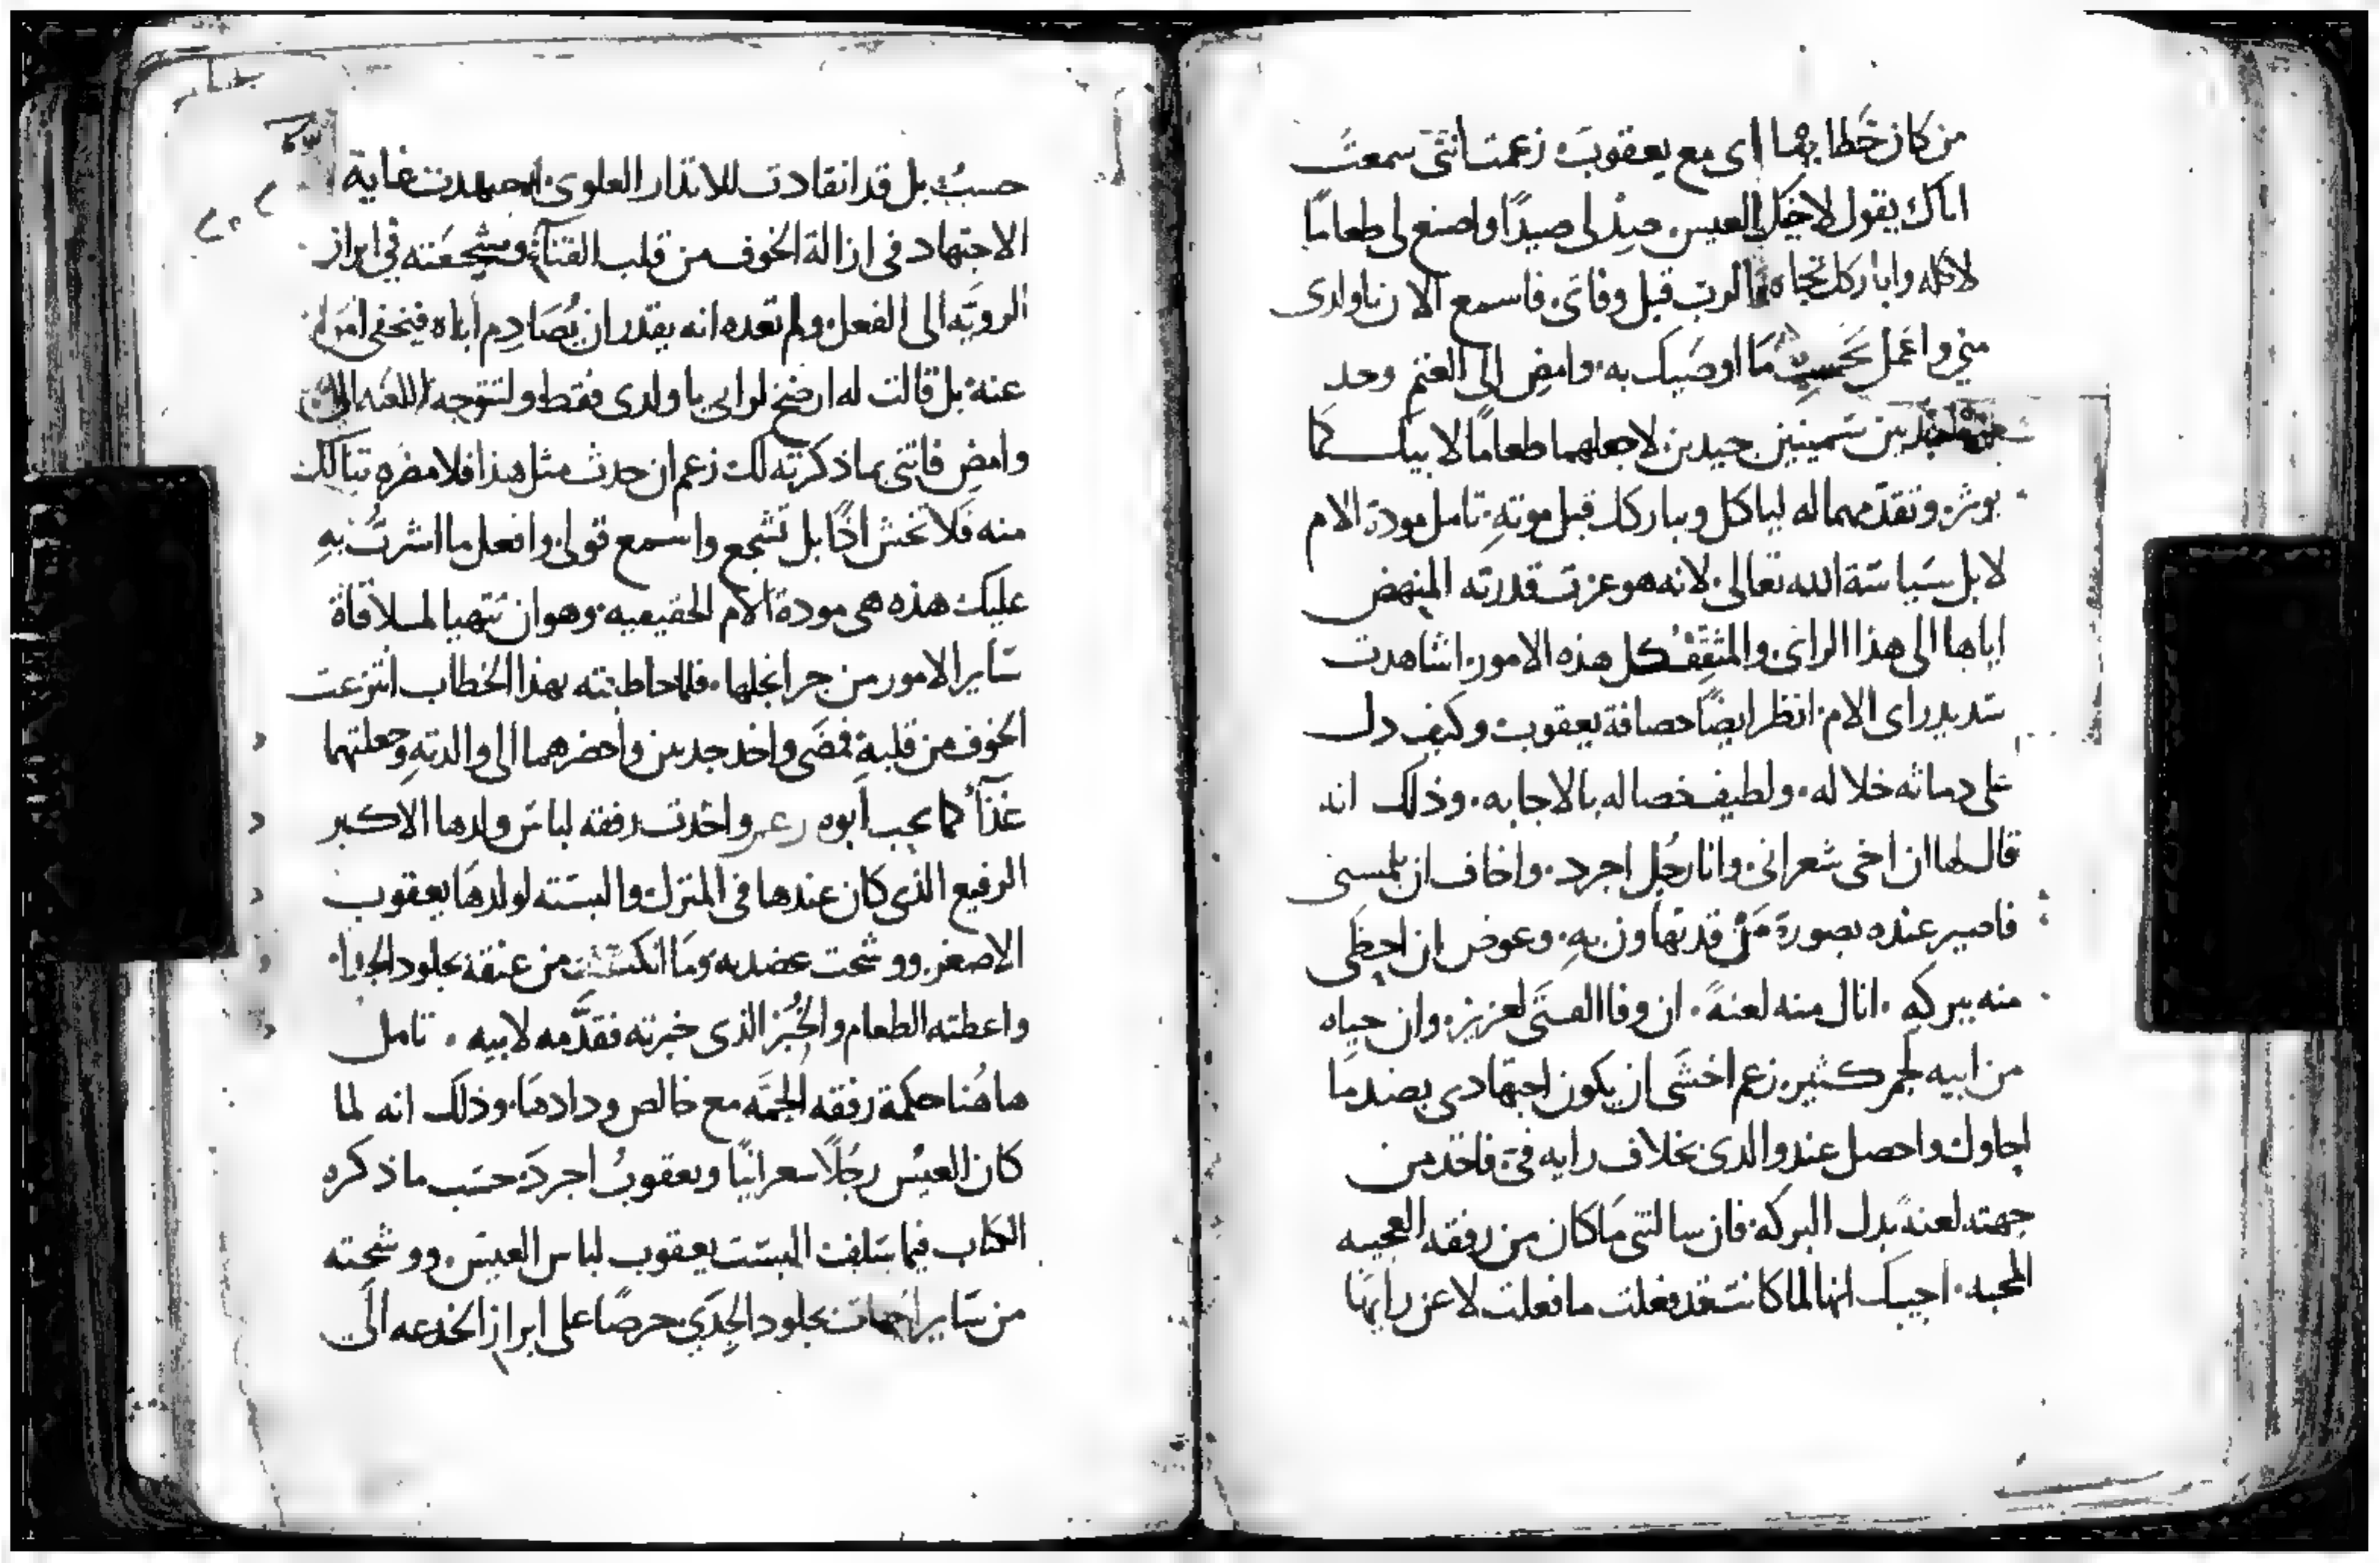 من كان خطابهما اى مع يعقوب زعمت انني سمعت
اباك يقول لاخيك العيس صد لى صيدًا واصنع لى طعامًا
لاكله واباركك تجاه الرب قبل وفاتى فاسمع الان ياولدى
مني واعمل بحسب ما اوصيك به وامض الى الغنم وخد
جديين سمينين جيدين لاجعلهما طعامًا لابيك كما
يوثر وتقدمهما له لياكل ويباركك قبل موته تامل مودة الام
لا بل سياسة الله تعالى لانه هو عزت قدرته المنهض
اياها الى هذا الراى والمثقف كل هذه الامور اشاهدت
سديد راى الام انظر ايضًا حصافة يعقوب وكيف دل
على دماثه خلاله ولطيف خصاله بالاجابه وذلك انه
قال لها ان اخى شعرانى وانا رجل اجرد واخاف ان يلمسنى
فاصير عنده بصورة من قد تهاون به وعوض ان احظى
منه ببركه انال منه لعنةً ان وفا الفتى لعزيز وان حياه
من ابيه لجم كثير زعم اخشى ان يكون اجتهادى بضد ما
احاول واحصل عند والدى بخلاف رايه فى فاخذ من
جهته لعنةً بدل البركه فان سالتنى ما كان من رفقه العجيبه
المحبه اجيبك انها لما كانت قد فعلت ما فعلت لا عن رايها
حسب بل قد انقادت للانذار العلوى اجتهدت غاية
الاجتهاد فى ازالة الخوف من قلب الفتاء وشجعته فى ابراز
الرويه الى الفعل ولم تعده انه يقدر ان يصادم اباه فيخفى امره
عنه بل قالت له ارضخ لرايى يا ولدى فقط ولتتوجه اللعنه الى
وامض فاتنى بما ذكرته لك زعم ان حدث مثل هذا فلا مضره تنالك
منه فلا تخش اذًا بل تشجع واسمع قولى وافعل ما اشرت به
عليك هذه هى مودة الام الحقيقيه وهو ان تتهيا لملاقاة
ساير الامور من جرا نجلها فلما خاطبته بهذا الخطاب انتزعت
الخوف من قلبه فمضى واخد جديين واحضرهما الى والدته وجعلتهما
غذآءً كما يحب ابوه واخدت رفقه لباس ولدها الاكبر
الرفيع الذى كان عندها فى المنزل والبسته لولدها يعقوب
الاصغر ووشحت عضديه وما انكشف من عنقه بجلود الجدا
واعطته الطعام والخبز الذى خبزته فقدمه لابيه تامل
هاهنا حكمة رفقه الجمه مع خالص ودادها وذلك انه لما
كان العيس رجلًا شعرانيًا ويعقوب اجرد حسب ما ذكره
الكتاب فيما سلف البست يعقوب لباس العيس ووشحته
من ساير الجهات بجلود الجدي حرصًا على ابراز الخدعه الى